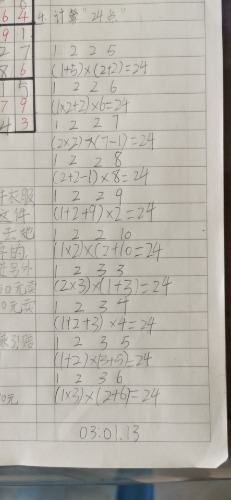 6 4
9 1
2 7
8 6
1 5
7 9
4 3
件衣服
这件
去地
0元卖
10元
4. 计算“24点”
1 2 2 5
(1+5)×(2+2)=24
1 2 2 6
(1×2+2)×6=24
1 2 2 7
(2×2)×(7-1)=24
1 2 2 8
(2+2-1)×8=24
1 2 2 9
(1+2+9)×2=24
1 2 2 10
(1×2)×(2+10=24
1 2 3 3
(2×3)×(1+3)=24
1 2 3 4
(1+2+3)×4=24
1 2 3 5
(1+2)×(3+5)=24
1 2 3 6
(1×3)×(2+6)=24
03.01.13